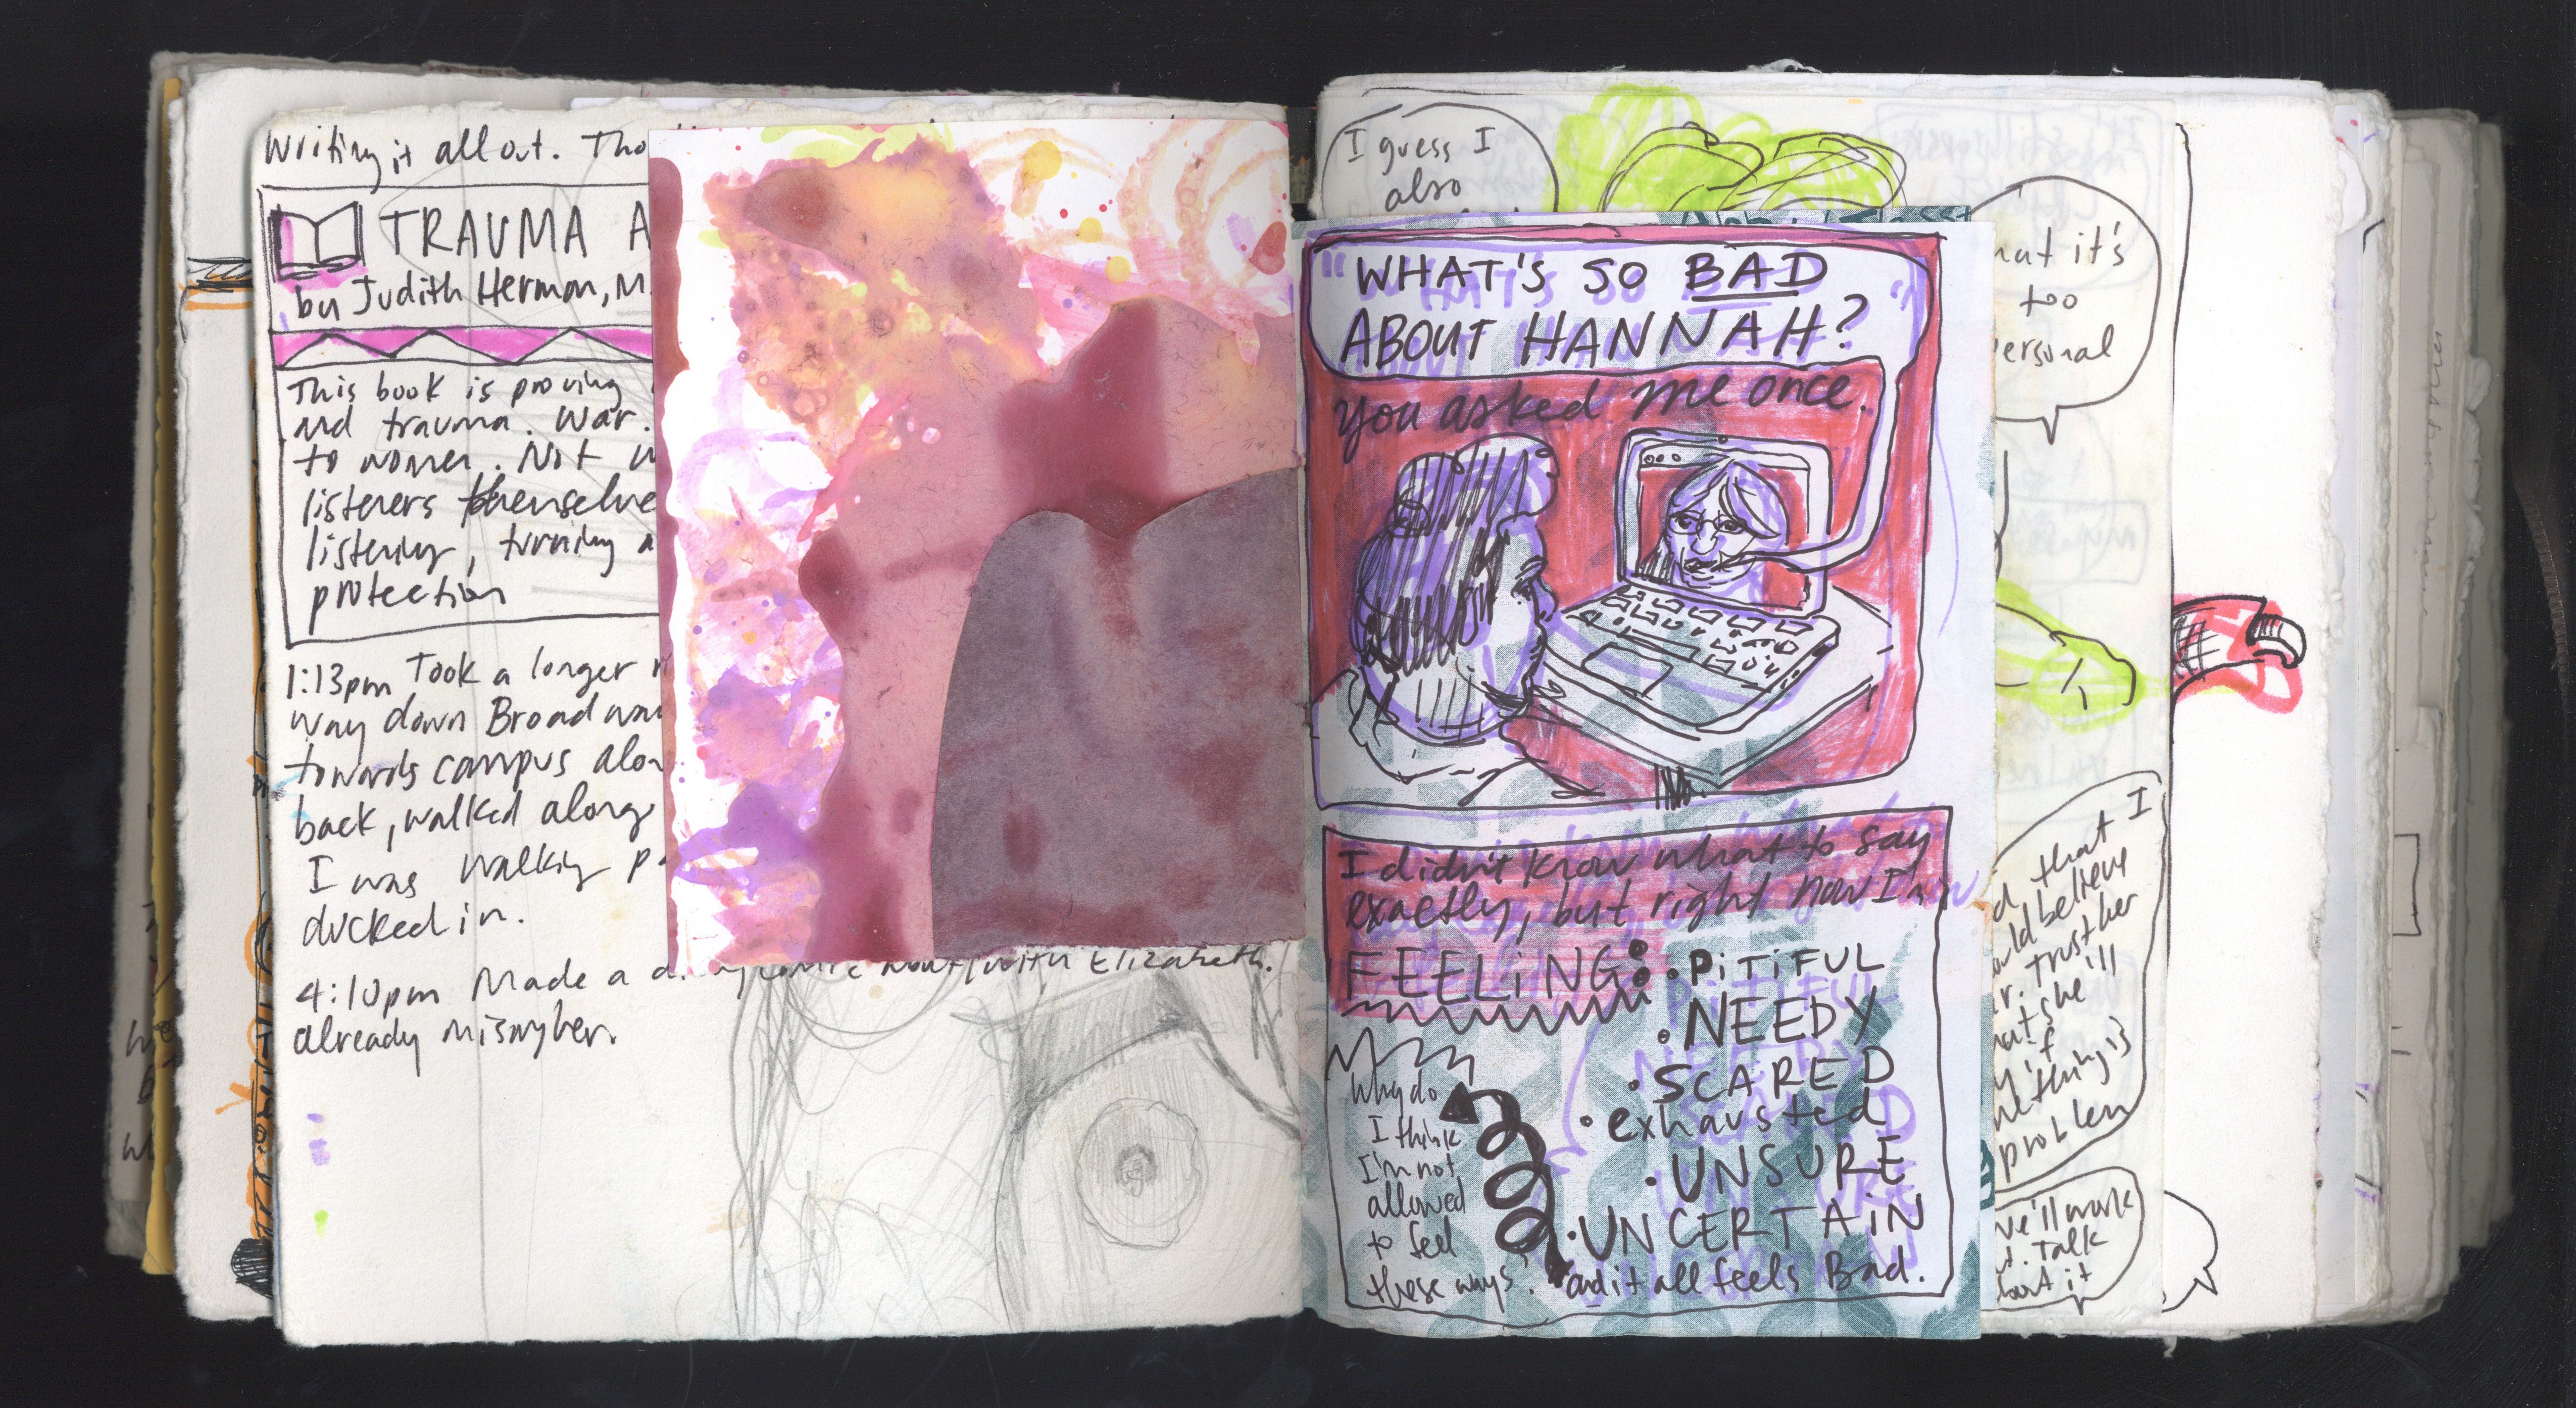 Writing it all out. Tho
TRAUMA A
by Judith Herman, M.
This book is proving
and trauma. War.
to women. Not
listeners themselve
listening, turning a
protection
1:13pm Took a longer
way down Broadway
towards campus alon
back, walked along
I was walking p
ducked in.
4:10pm Made a with Elizabeth.
already missing her.
I guess I
also
hat it's
too
ersonal
"WHAT'S SO BAD
ABOUT HANNAH?"
you asked me once.
I didn't know what to say
exactly, but right now I'm
FEELING:
• PITIFUL
• NEEDY
• SCARED
• exhausted
• UNSURE
• UNCERTAIN
and it all feels Bad.
Why do
I think
I'm not
allowed
to feel
these ways?
d that I
uld believe
r. trust her
hat she'll
y if
mething is
problem
we'll work
t. Talk
bout it